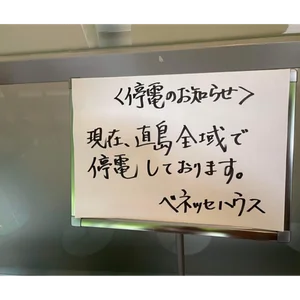 <停電のお知らせ>
現在、直島全域で
停電しております。
ベネッセハウス